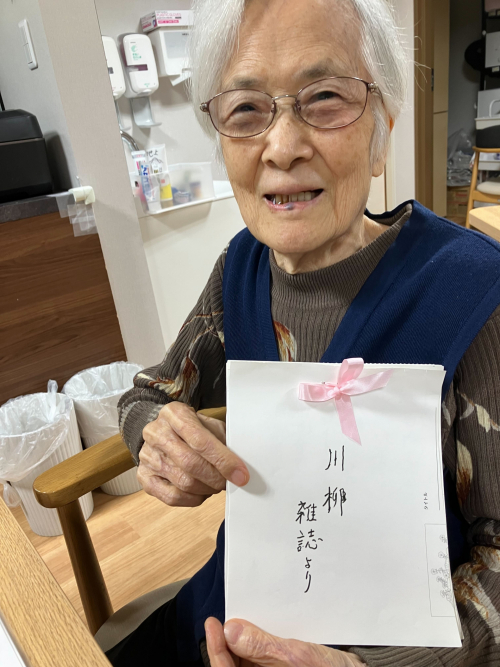 川柳
雑誌より